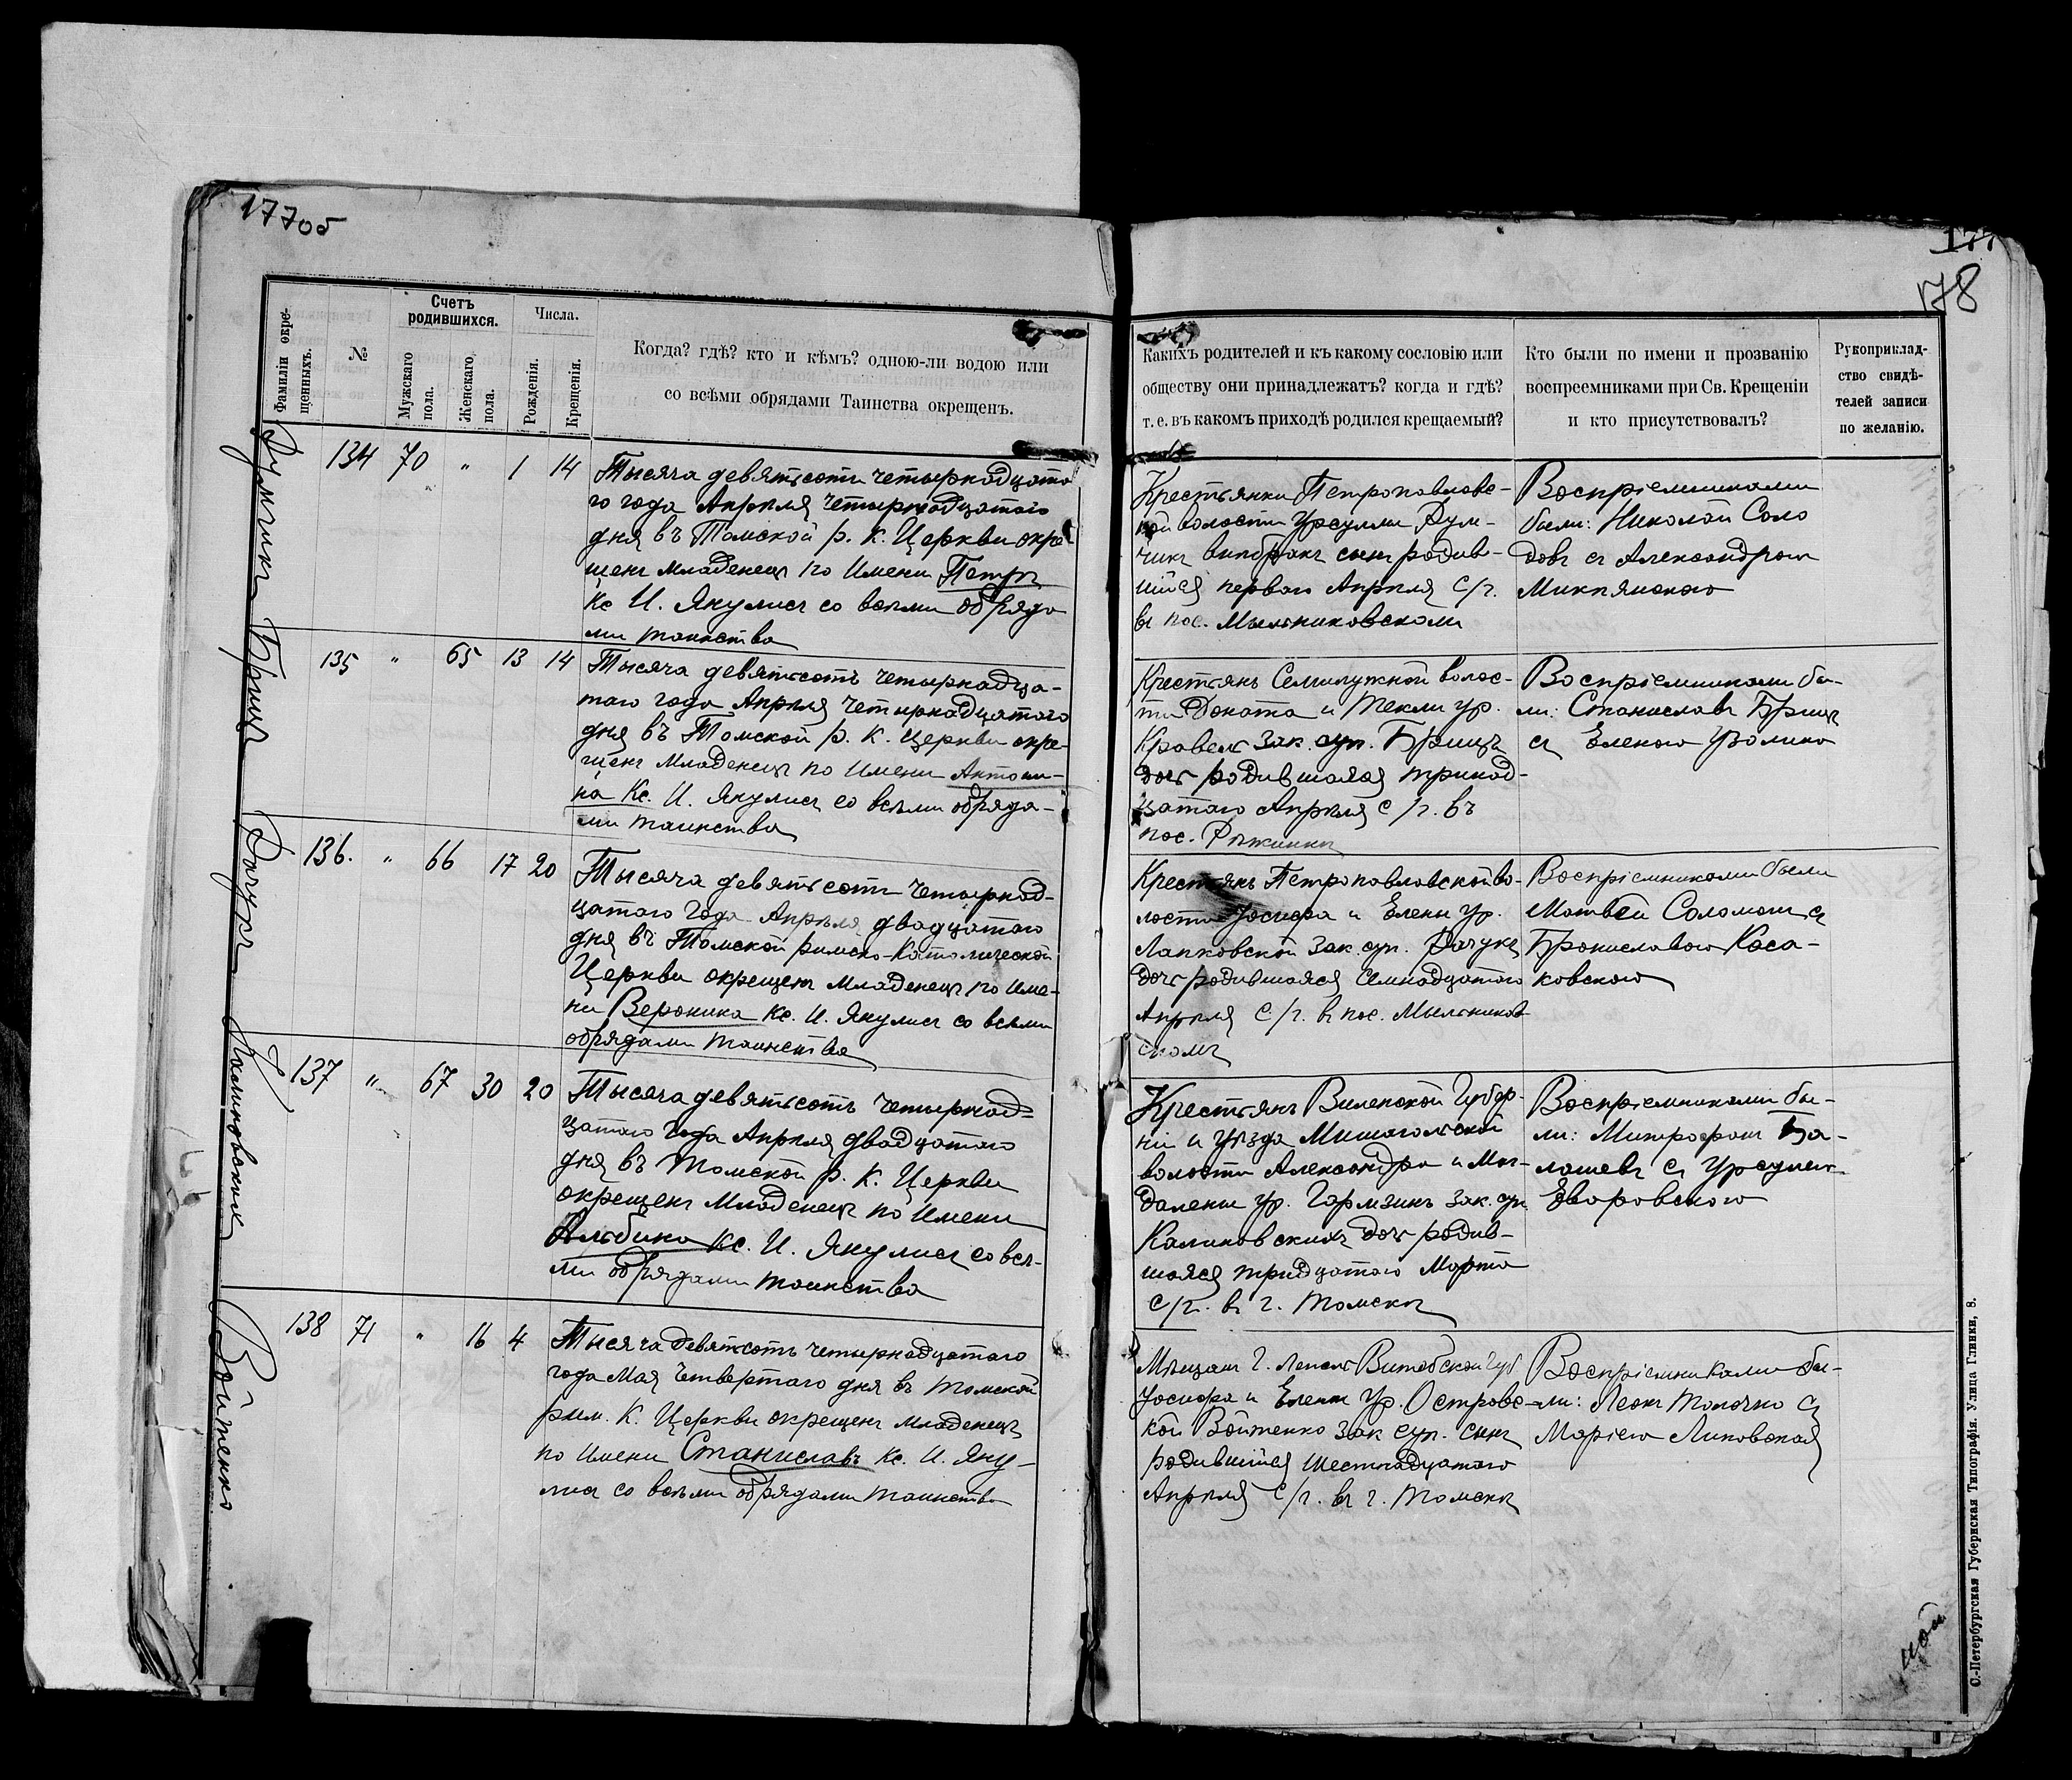 177об
177
178
Фамиліи окрещенныхъ.
№
Счетъ родившихся.
Мужскаго пола.
Женскаго пола.
Числа.
Рожденія.
Крещенія.
Когда? гдѣ? кто и кѣмъ? одною-ли водою или
со всѣми обрядами Таинства окрещенъ.
Какихъ родителей и къ какому сословію или
обществу они принадлежатъ? когда и гдѣ?
т. е. въ какомъ приходѣ родился крещаемый?
Кто были по имени и прозванію
воспреемниками при Св. Крещеніи
и кто присутствовалъ?
Рукоприклад-
ство свидѣ-
телей записи
по желанію.
Румчикъ
134 70 " 1 14
Тысяча девятьсотъ четырнадцата
го года Апрѣля четырнадцатаго
дня въ Томской р. К. Церкви окре-
щенъ младенецъ по имени Петръ
Кс. И. Якулисъ со всѣми обряда
ми таинства
Крестьянки Петропавловс-
кой волости Урсулы Рум-
чикъ внѣбрачн сынъ родив-
шійся перваго Апрѣля с/г.
въ пос. Мыльниковскомъ
Воспріемниками
были: Николай Соло
довъ съ Александрою
Брицъ
135 " 65 13 14
Тысяча девятьсотъ четырнадца-
таго года Апрѣля четырнадцатаго
дня въ Томской р. К. Церкви окре-
щенъ Младенецъ по имени Антони-
на Кс. И. Якулисъ со всѣми обряда-
ми таинства
Крестьянъ Семилужной волос-
ти Доната и Теклы ур.
Кравель зак. суп. Брицъ
дочь родившаяся тринад-
цатаго Апрѣля с/г. въ
пос.
Воспріемниками бы-
ли: Станиславъ Брицъ
съ Еленою
Рачукъ
136. " 66 17 20
Тысяча девятьсотъ четырнад-
цатаго года Апрѣля двадцатаго
дня въ Томской римско-католической
Церкви окрещенъ младенецъ по име-
ни Вероника Кс. И. Якулисъ со всѣми
обрядами таинства
Крестьянъ Петропавловской во-
лости Іосифа и Елены ур.
Лапковской зак. суп. Рачукъ
дочь родившаяся семнадцатаго
Апрѣля с/г. въ пос. Мыльников
скомъ
Воспріемниками были
Матвей Саломонъ съ
Брониславою Каса-
ковскою
Калиновскихъ
137 " 67 30 20
Тысяча девятьсотъ четырнад-
цатаго года Апрѣля двадцатаго
дня въ Томской р. К. Церкви
окрещенъ Младенецъ по имени
Альбина Кс. И. Якулисъ со всѣ-
ми обрядами таинства
Крестьянъ Виленской Губер-
ніи и уѣзда Мишагольской
волости Александра и Маг-
далены ур. Гармзинъ зак. суп
Калиновскихъ дочь родив-
шаяся тридцатаго Марта
с/г. въ г. Томскѣ
Воспріемниками бы-
ли: Митрофанъ Ба-
лашевъ съ Урсулею
Яворовскою
Войтенко
138 71 " 16 4
Тысяча девятьсотъ четырнадцатаго
года Мая четвертаго дня въ Томской
рим. К. Церкви окрещенъ младенецъ
по имени Станиславъ Кс. И. Яку-
лисъ со всѣми обрядами таинства
Мѣщанъ г. Лепель Витебской Губ
Іосифа и Елены ур. Островс-
кой Войтенко зак суп. сынъ
родившійся шестнадцатаго
Апрѣля с/г. въ г. Томскѣ
Воспріемниками бы-
ли: Леонъ Толочко съ
Маріею Линовская
С.-Петербургская Губернская Типографія. Улица Глинки, 8.